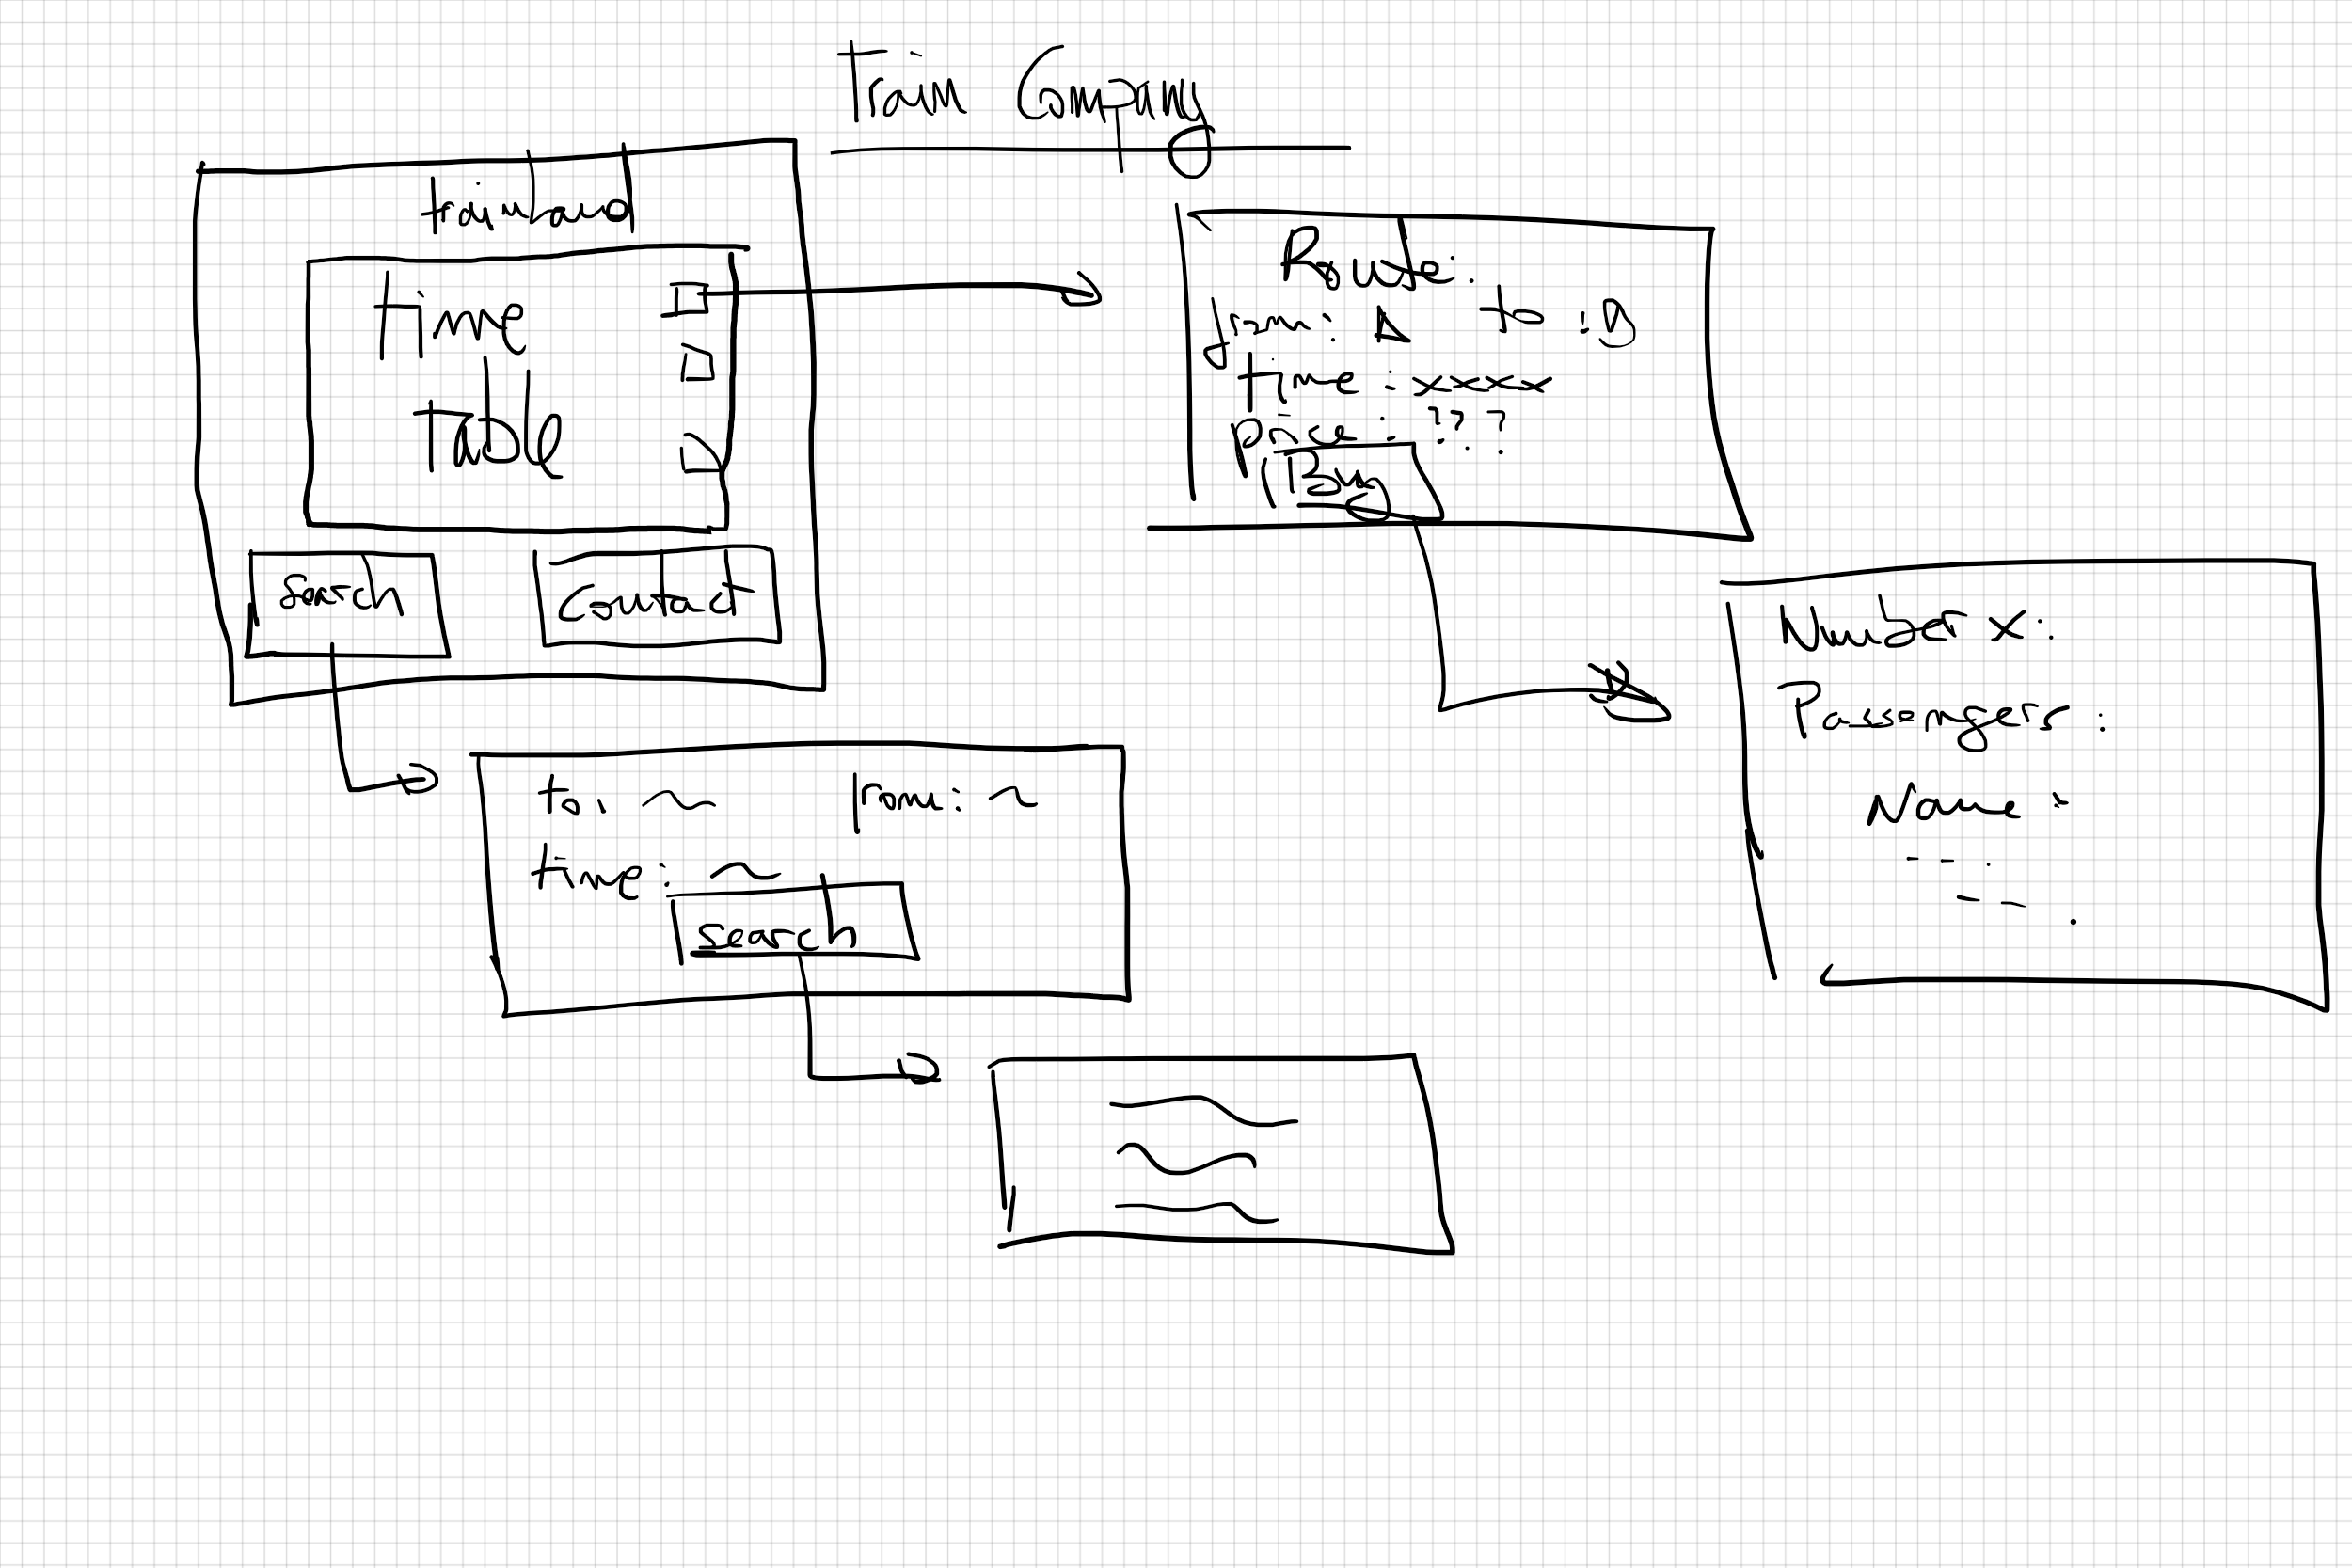 Train Company
trainland
Time
Table
Search
Contact
Route:
from: A to: B
time: xxxx
price: ???
Buy
Number x:
Passengers:
Name:
to: ~ from: ~
time: ~
search